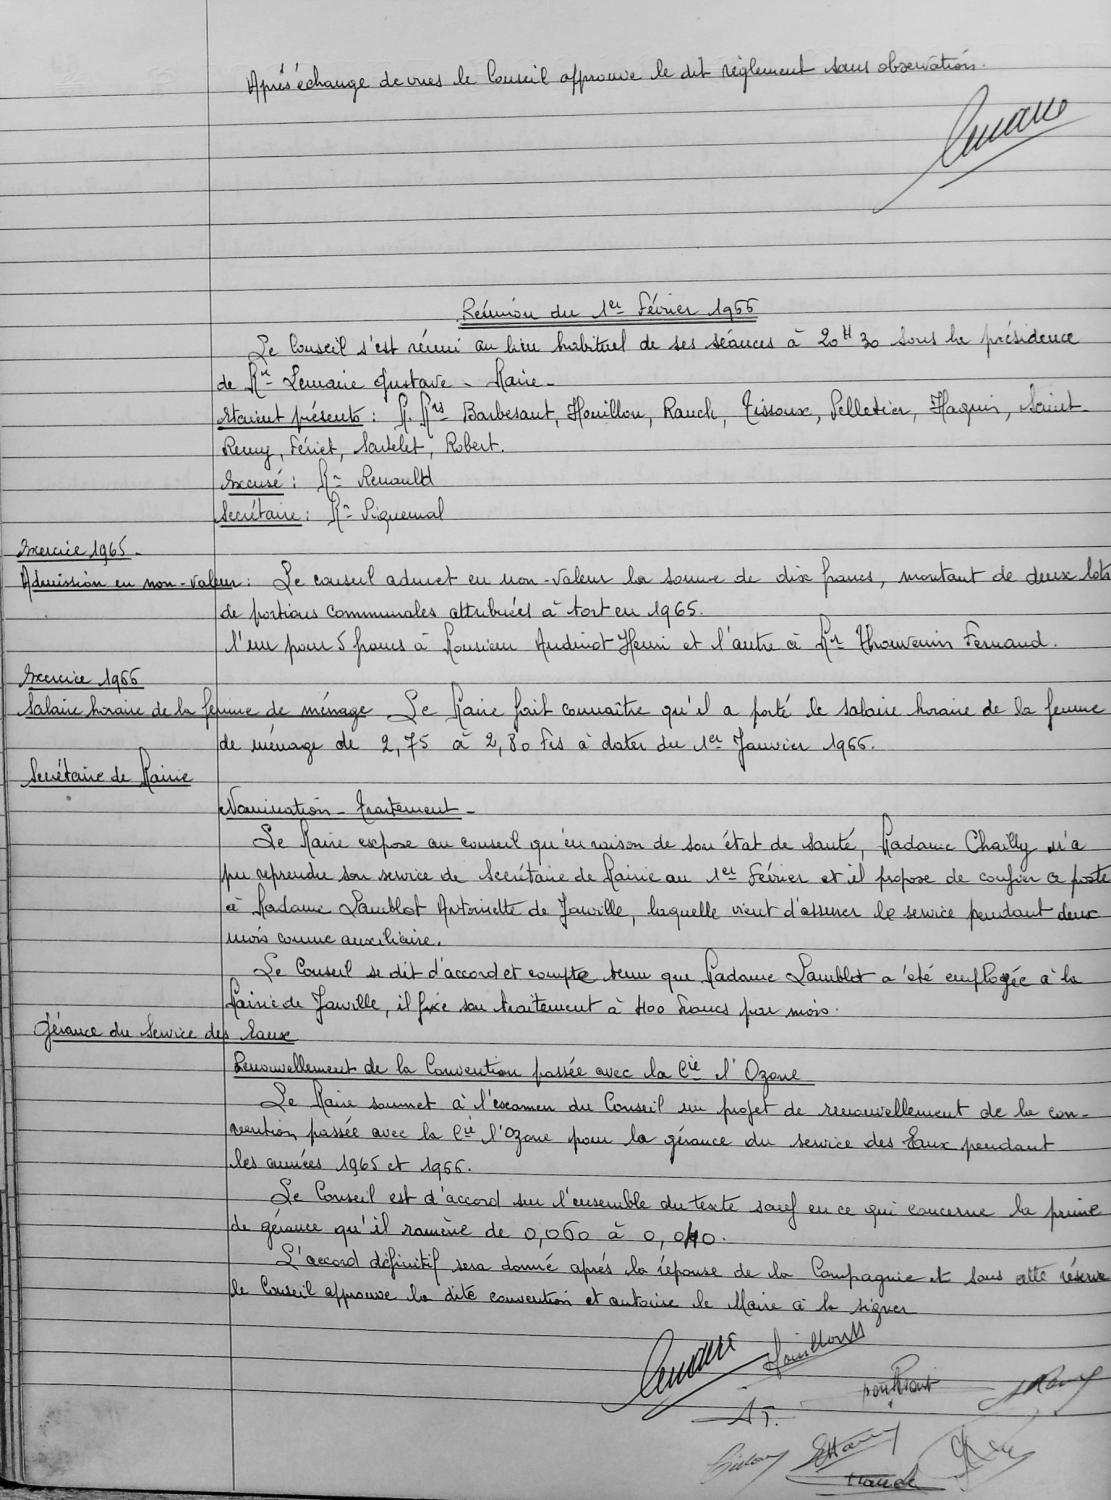 Après échange de vues le Conseil approuve le dit règlement sans observation.
Lemaire
Réunion du 1er Février 1966
Le Conseil s'est réuni au lieu habituel de ses séances à 20H30 sous la présidence
de Mr Lemaire Gustave - Maire -
Etaient présents : M. Mrs Barbesant, Houillon, Rauch, Tissoux, Pelletier, Haquin, Saint-
Remy, Fériet, Sartelet, Robert.
Excusé : Mr Renauld
Secrétaire : Mr Piquemal
Exercice 1965 -
Admission en non-valeur : Le conseil admet en non-valeur la somme de dix francs, montant de deux lots
de portions communales attribuées à tort en 1965.
l'un pour 5 francs à Monsieur Audinot Henri et l'autre à Mr Thouvenin Fernand.
Exercice 1966
Salaire horaire de la femme de ménage Le Maire fait connaître qu'il a porté le salaire horaire de la femme
de ménage de 2,75 à 2,80 Frs à dater du 1er Janvier 1966.
Secrétaire de Mairie
Nomination - Traitement -
Le Maire expose au conseil qu'en raison de son état de santé, Madame Chailly n'a
pu reprendre son service de Secrétaire de Mairie au 1er Février et il propose de confier ce poste
à Madame Lamblot Antoinette de Jainville, laquelle vient d'assurer le service pendant deux
mois comme auxiliaire.
Le Conseil se dit d'accord et compte tenu que Madame Lamblot a été employée à la
Mairie de Jainville, il fixe son traitement à 400 Francs par mois.
Gérance du Service des Eaux
Renouvellement de la Convention passée avec la Cie l'Ozone
Le Maire soumet à l'examen du Conseil un projet de renouvellement de la con-
vention passée avec la Cie l'Ozone pour la gérance du service des Eaux pendant
les années 1965 et 1966.
Le Conseil est d'accord sur l'ensemble du texte sauf en ce qui concerne la prime
de gérance qu'il ramène de 0,060 à 0,040.
L'accord définitif sera donné après la réponse de la Compagnie et sous cette réserve
le Conseil approuve la dite convention et autorise le Maire à la signer
Lemaire Houillon